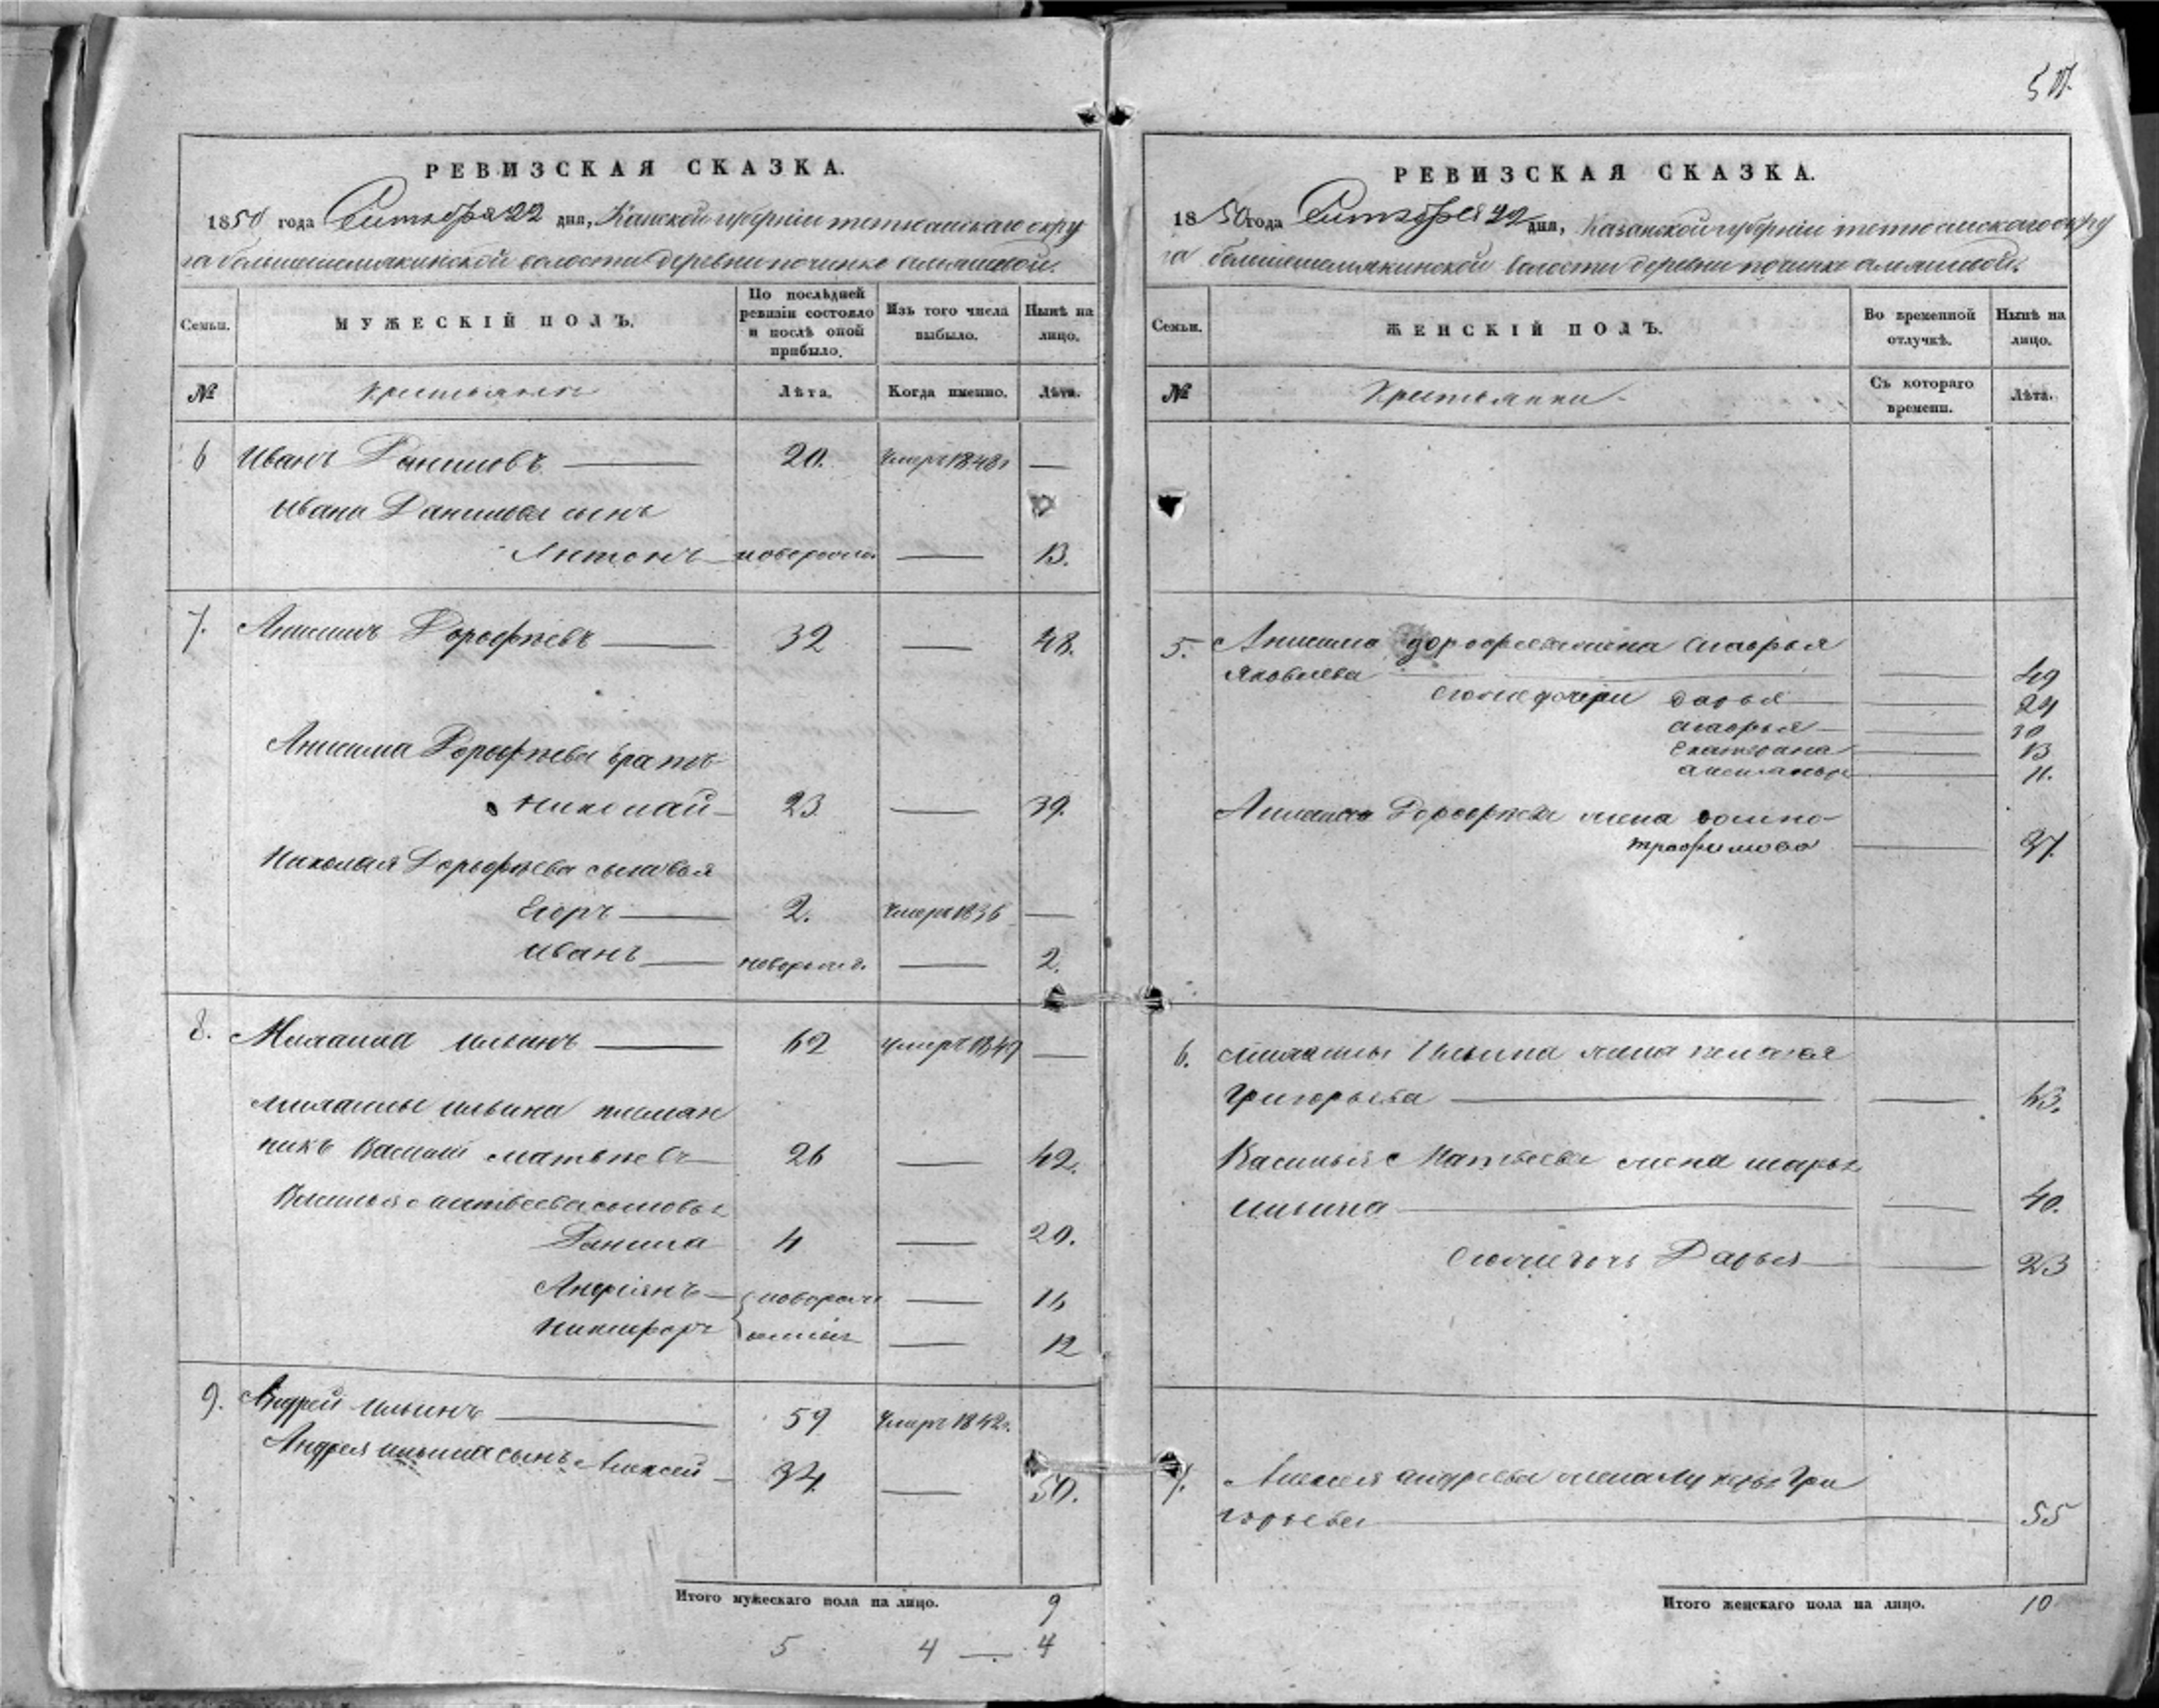 517.
РЕВИЗСКАЯ СКАЗКА.
1850 года Сентября 22 дня, Казанской губернiи тетюшскаго окру
га большешемякинской волости деревни починке
Семьи.
МУЖЕСКIЙ ПОЛЪ.
По послѣдней ревизiи состояло и послѣ оной прибыло.
Изъ того числа выбыло.
Нынѣ на лицо.
№
Крестьяне
Лѣта.
Когда именно.
Лѣта.
6 Иванъ Даниловъ 20. Умеръ 1848 г —
Ивана Данилова сынъ
Антонъ новорожд. — 13.
7. Анисимъ Дорофѣевъ 32 — 48.
Анисима Дорофѣева братъ
Николай 23 — 39.
Николая Дорофѣева сыновья
Егоръ 2. Умеръ 1836 —
Иванъ новорожд. — 2.
8. Ильинъ 62 умеръ 1849 —
Ильина племян
никъ Василий Матвѣевъ 26 — 42.
Василья Матвеева сыновья
Данила 4 — 20.
Андрiянъ новорож — 16
Никифоръ денные — 12
9. Андрей Ильинъ 59 Умеръ 1842 г.
Андрея Ильина сынъ Алексей 34 — 50.
Итого мужескаго пола на лицо. 9
5 4 — 4
РЕВИЗСКАЯ СКАЗКА.
1850 года Сентября 22 дня, Казанской губернiи тетюшскаго окру
га большешемякинской волости деревни починке
Семьи.
ЖЕНСКIЙ ПОЛЪ.
Во временной отлучкѣ.
Нынѣ на лицо.
№
Крестьянки
Съ котораго времени.
Лѣта.
5. Анисима Дорофеева жена Мавρья
Яковлева — 49
дочери Дарья — 24
Мавρья — 30
Екатерина — 13
— 11.
Дорофѣева жена
Трофимова — 37.
6. Ильина жена
Григорьева — 63.
Василья Матвеева жена Марья
Ильина — 40.
дочь Дарья — 23
7. Алексея Андреева жена Лукерья Гри
горьева 55
Итого женскаго пола на лицо. 10